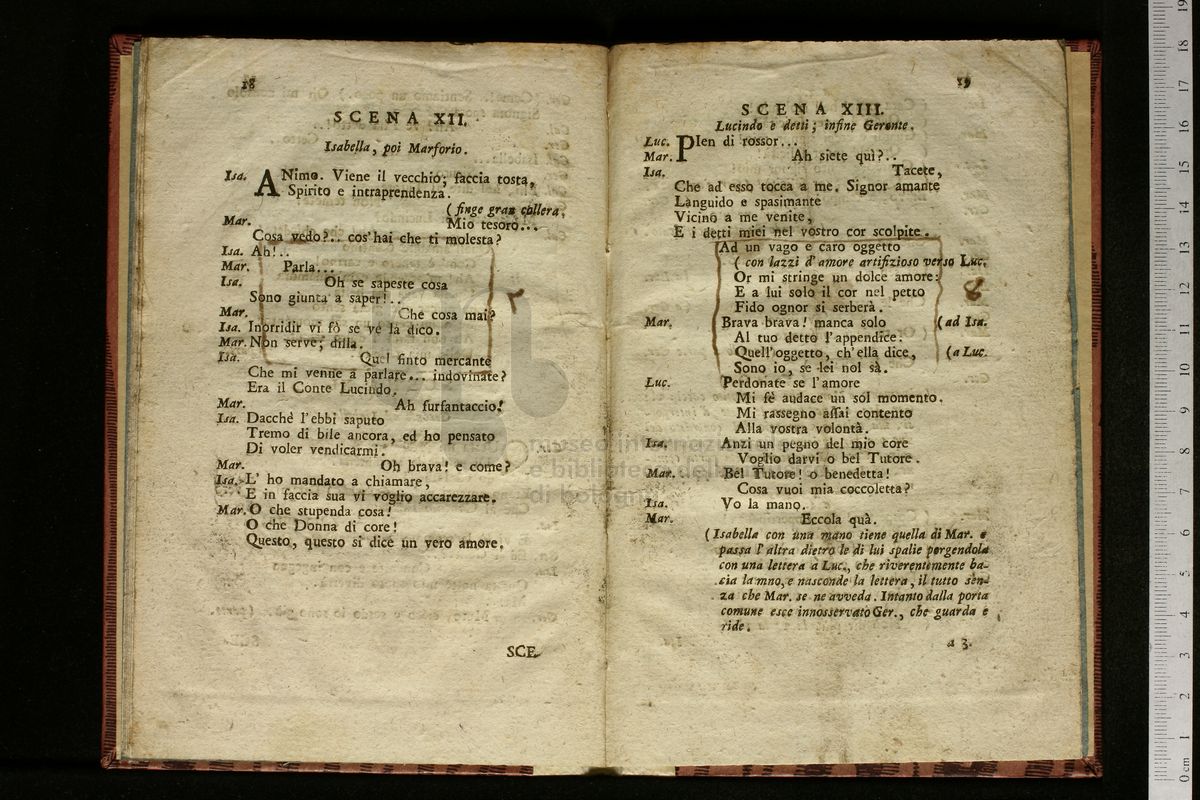 18
SCENA XII.
Isabella, poi Marforio.
Isa. ANimo. Viene il vecchio; faccia tosta,
Spirito e intraprendenza.
(finge gran collera.
Mar. Mio tesoro...
Cosa vedo?.. cos'hai che ti molesta?
Isa. Ah!..
Mar. Parla...
Isa. Oh se sapeste cosa
Sono giunta a saper!..
Mar. Che cosa mai?
Isa. Inorridir vi fò se ve la dico.
Mar. Non serve; dilla.
Isa. Quel finto mercante
Che mi venne a parlare... indovinate?
Era il Conte Lucindo.
Mar. Ah furfantaccio!
Isa. Dacchè l'ebbi saputo
Tremo di bile ancora, ed ho pensato
Di voler vendicarmi.
Mar. Oh brava! e come?
Isa. L' ho mandato a chiamare,
E in faccia sua vi voglio accarezzare.
Mar. O che stupenda cosa!
O che Donna di core!
Questo, questo si dice un vero amore.
SCE.
19
SCENA XIII.
Lucindo e detti; infine Geronte.
Luc. PIen di rossor...
Mar. Ah siete quì?..
Isa. Tacete,
Che ad esso tocca a me. Signor amante
Languido e spasimante
Vicino a me venite,
E i detti miei nel vostro cor scolpite.
Ad un vago e caro oggetto
(con lazzi d'amore artifizioso verso Luc.
Or mi stringe un dolce amore:
E a lui solo il cor nel petto
8
Fido ognor si serberà.
Mar. Brava brava! manca solo (ad Isa.
Al tuo detto l'appendice.
Quell'oggetto, ch'ella dice, (a Luc.
Sono io, se lei nol sà.
Luc. Perdonate se l'amore
Mi fè audace un sol momento.
Mi rassegno assai contento
Alla vostra volontà.
Isa. Anzi un pegno del mio core
Voglio darvi o bel Tutore.
Mar. Bel Tutore! o benedetta!
Cosa vuoi mia coccoletta?
Isa. Vo la mano.
Mar. Eccola quà.
(Isabella con una mano tiene quella di Mar. e
passa l'altra dietro le di lui spalle porgendola
con una lettera a Luc., che riverentemente ba-
cia la mno, e nasconde la lettera, il tutto sen-
za che Mar. se ne avveda. Intanto dalla porta
comune esce innosservato Ger., che guarda e
ride.
a 3.
museo internazionale
e biblioteca della musica
di bologna
0 cm 1 2 3 4 5 6 7 8 9 10 11 12 13 14 15 16 17 18 19